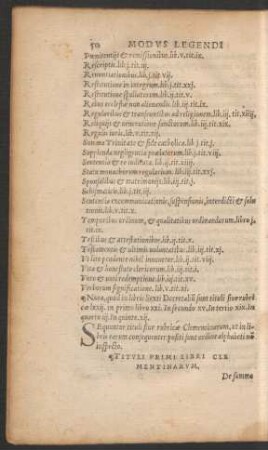 50 MODVS LEGENDI
Pœnitentijs & remissionibus. lib. v. tit. ix.
Rescriptis. lib. j. tit. iij.
Renuntiationibus. lib. j. tit. vij.
Restitutione in integrum lib. j. tit. xxj.
Restitutione spoliatorum. lib. ij. tit. v.
Rebus ecclesiæ non alienandis. lib. iij. tit. ix.
Regularibus & transeuntibus ad religionem. lib. iij. tit. xiiij.
Reliquijs & veneratione sanctorum. lib. iij. tit. xix.
Regulis iuris. lib. v. tit.
Summa Trinitate & fide catholica. lib. j. tit. j.
Supplenda negligentia prælatorum. lib. j. tit. viij.
Sententia & re iudicata. lib. ij. tit. xiiij.
Statu monachorum regularium. lib. iij. tit. xvj.
Sponsalibus & matrimonijs. lib. iiij. tit. j.
Schismaticis. lib. v. tit. iij.
Sententia excommunicationis, suspensionis, interdicti & absolutionis
lib. v. tit. x.
Temporibus ordinum, & qualitatibus ordinandorum. libro j.
tit. ix.
Testibus & attestationibus. lib. ij. tit. x.
Testamentis & ultimis voluntatibus. lib. iij. tit. xj.
Vt lite pendente nihil innouetur. lib. ij. tit. viij.
Vita & honestate clericorum. lib. iij. tit. j.
Voto & voti redemptione. lib. iij. tit. xv.
Verborum significatione. lib. v. tit.
¶ Nota, quod in libro Sexti Decretaliū sunt tituli siue rubricæ
lxxij. in primo libro xxij. In secundo xv. In tertio xix. In
quarto iij. In quinto xij.
SEquuntur tituli siue rubricæ Clementinarum, ut in libris
earum conijunguntur positi iuxta ordinē alphabeti nō
¶TITVLI PRIMI LIBRI CLE
MENTINARVM.
De summa